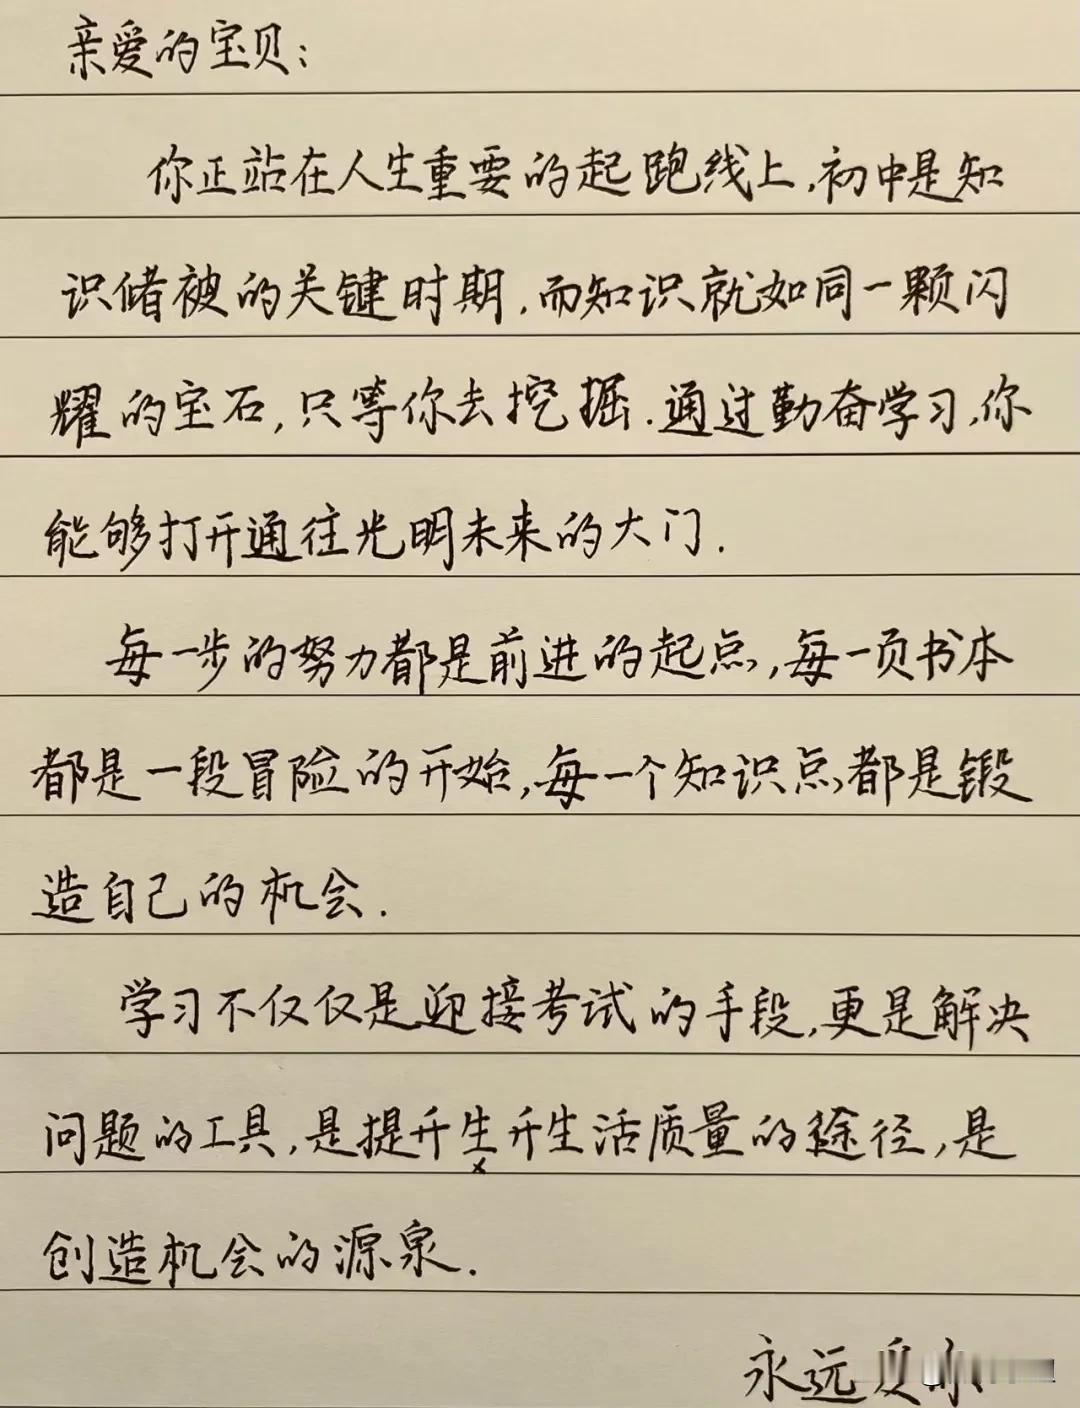 亲爱的宝贝：
你正站在人生重要的起跑线上,初中是知
识储被的关键时期,而知识就如同一颗闪
耀的宝石,只等你去挖掘.通过勤奋学习,你
能够打开通往光明未来的大门.
每一步的努力都是前进的起点,每一页书本
都是一段冒险的开始,每一个知识点都是锻
造自己的机会.
学习不仅仅是迎接考试的手段,更是解决
问题的工具,是提升生升生活质量的途径,是
创造机会的源泉.
永远